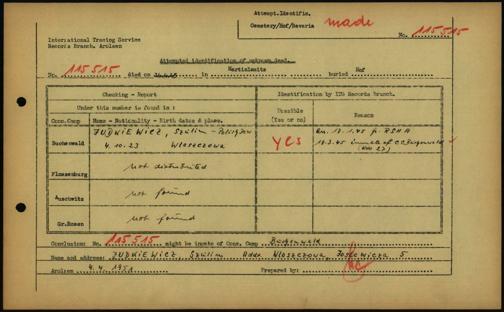 Attempt.Identific.
Cemetery/Hof/Bavaria made
International Tracing Service
Records Branch, Arolsen
No. 115515
Attempted identification of unknown dead.
No. 115515 died on in Martinlamitz buried Hof
Checking - Report
Identification by ITS Records branch.
Under this number is found in :
Possible (Yes or no)
Reason
Conc.Camp Name - Nationality - Birth dates & place.
Buchenwald JUDKIEWICZ, Szulim - Polish Jew
4.10.23 Wloszczowa
yes
13.1.45
18.3.45 inmate of CC Buchenwald
Flossenburg not distributed
Auschwitz not found
Gr.Rosen not found
Conclusion: No. 115515 might be inmate of Conc. Camp Buchenwald
Name and address: JUDKIEWICZ, Szulim Addr. Wloszczowa, 5
Arolsen 4.4.1951 Prepared by: